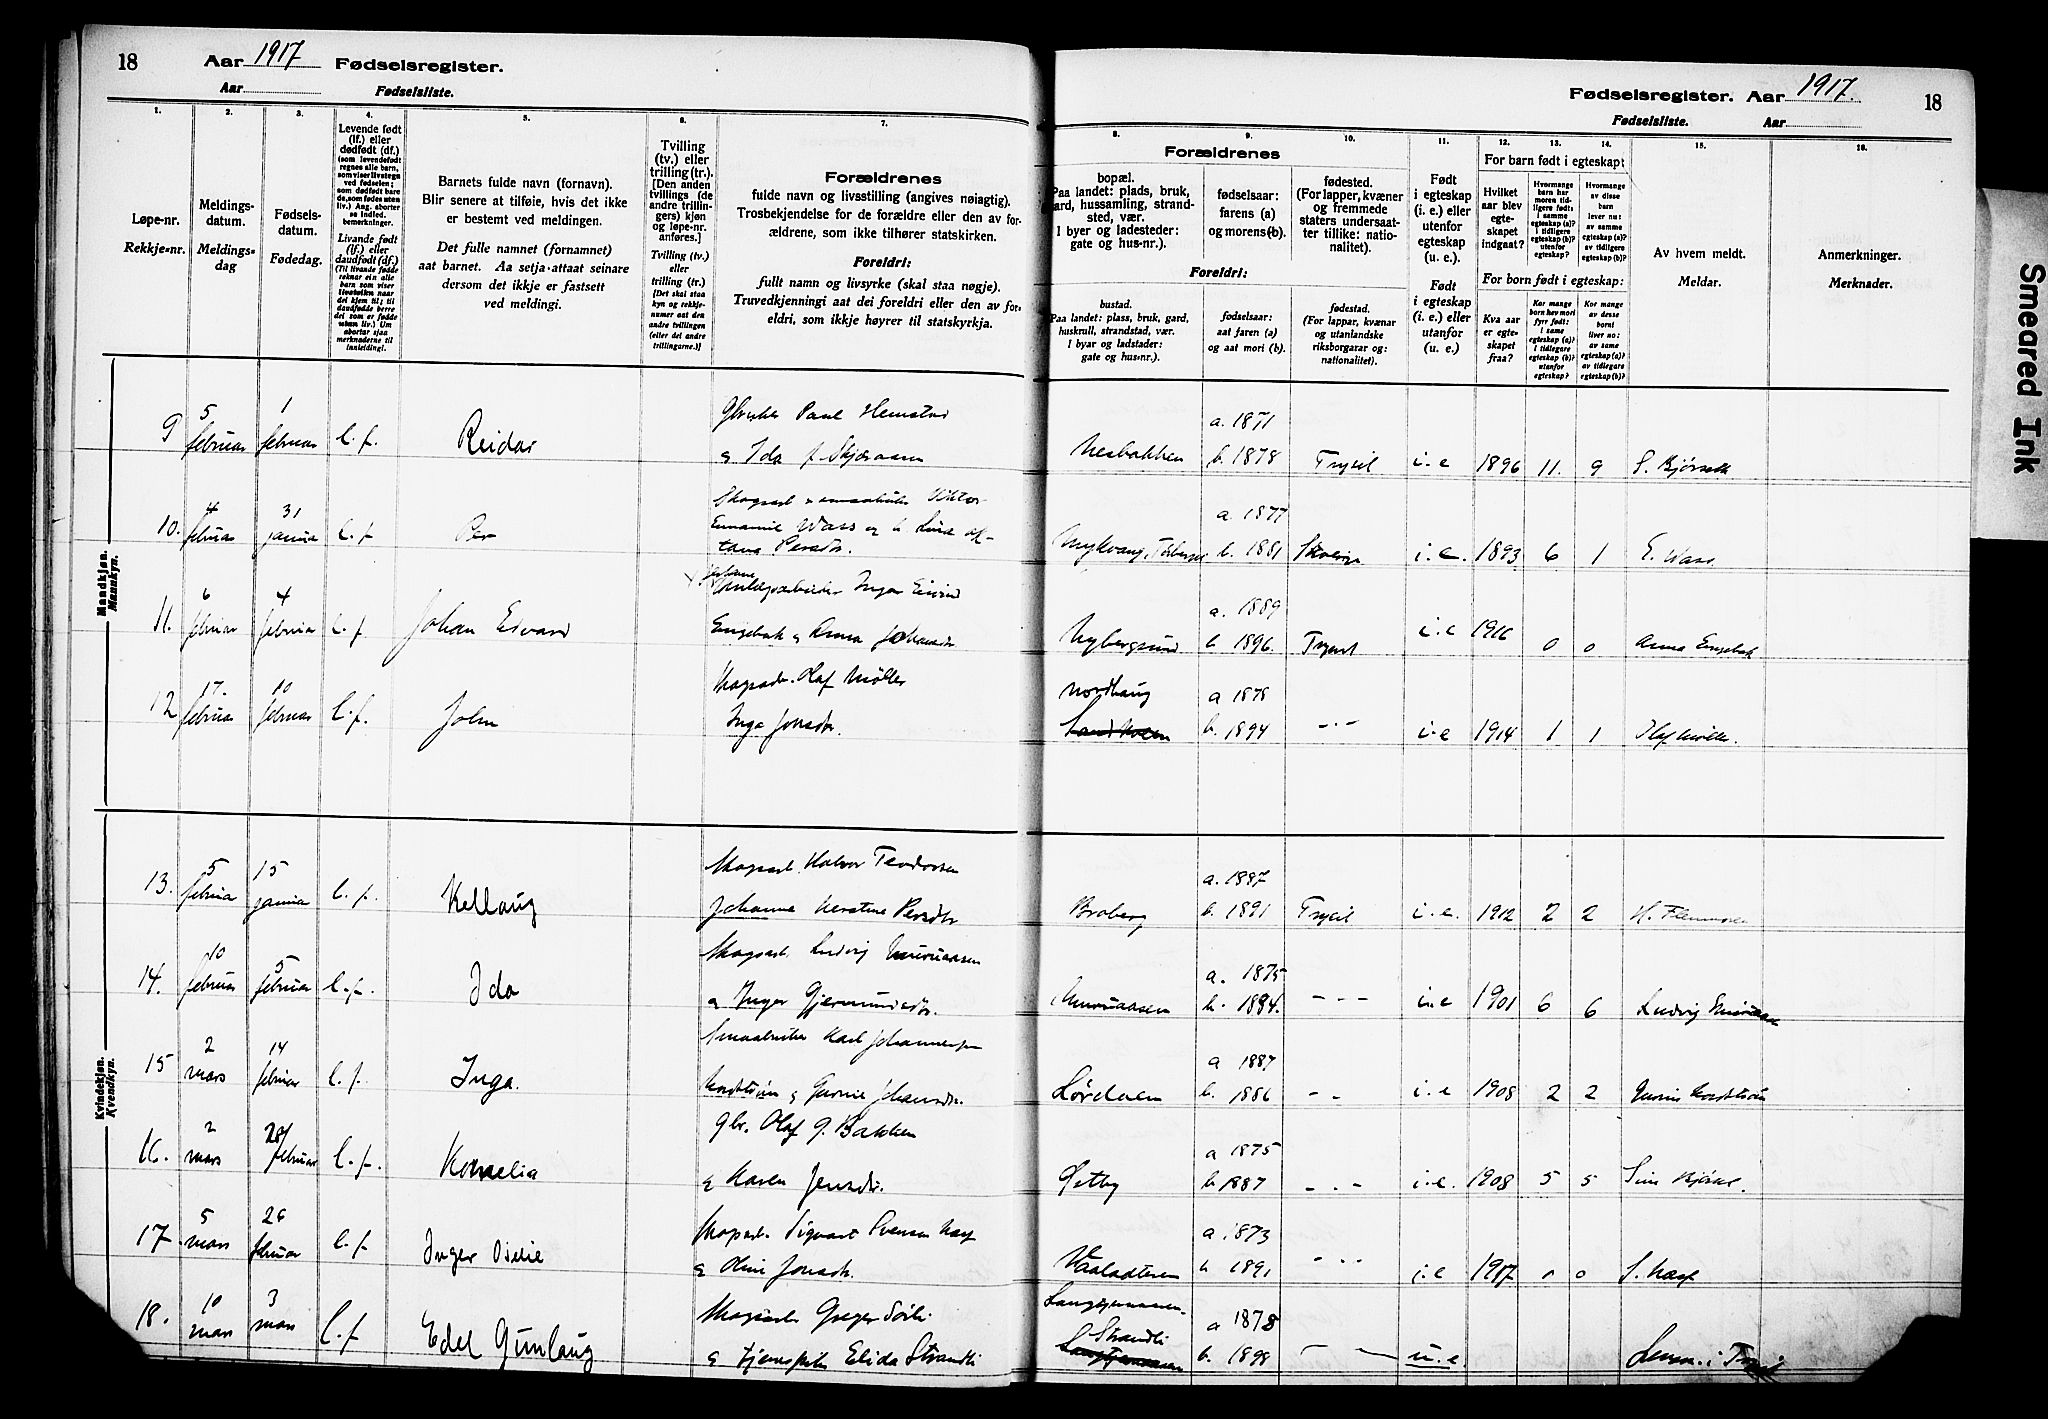 18 Aar 1917 Fødselsregister.
Aar Fødselsliste.
Fødselsregister. Aar 1917. 18
Fødselsliste. Aar
1.
Løpe-nr.
Rekkje-nr.
2.
Meldings-
datum.
Meldings-
dag
3.
Fødsels-
datum.
Fødedag.
4.
Levende født
(lf.) eller
dødfødt (df.)
(som levendefødt
regnes alle barn,
som viser livstegn
ved fødselen;
som dødfødt bare
de, som fødes uten
liv.) Ang. aborter
se indled.
bemerkninger.
Livande født
(lf.) eller
daudfødt (df.)
(Til livande fødde
reknar ein alle
barn som viser
livsteikn naar
dei kjem til; til
daudfødde berre
dei som er fødde
utan liv.) Um
abortar sjaa
merknaderne til
innleiding!.
5.
Barnets fulde navn (fornavn).
Blir senere at tilføie, hvis det ikke
er bestemt ved meldingen.
Det fulle namnet (fornamnet)
aat barnet. Aa setja attaat seinare
dersom det ikkje er fastsett
ved meldingi.
6.
Tvilling
(tv.) eller
trilling (tr.).
[Den anden
tvillings (de
andre trillin-
gers) kjøn
og løpe-nr.
anføres.]
Tvilling (tv.)
eller
trilling (tr.)
[Det skal staa
kyn og rekkje-
numer aat den
andre tvillingen
(eller dei andre
trillingarne.)]
7.
Forældrenes
fulde navn og livsstilling (angives nøiagtig).
Trosbekjendelse for de forældre eller den av for-
ældrene, som ikke tilhører statskirken.
Foreldri:
fullt namn og livsyrke (skal staa nøgje).
Truvedkjenningi aat dei foreldri eller den av for-
eldri, som ikkje høyrer til statskyrkja.
Forældrenes
8.
bopæl.
Paa landet: plads, bruk,
ard, hussamling, strand-
sted, vær.
I byer og ladesteder:
gate og hus-nr.).
Foreldri:
bustad.
Paa landet: plass, bruk, gard,
huskrull, strandstad, vær.
I byar og ladstader:
gate og hus-nr.).
9.
fødselsaar:
farens (a)
og morens (b).
fødselsaar:
aat faren (a)
og aat mori (b).
10.
fødested.
(For lapper, kvæner
og fremmede
staters undersaat-
ter tillike: natio-
nalitet).
fødestad.
(For lappar, kvænar
og utanlandske
riksborgarar og:
nationalitet).
11.
Født
i egteskap
(i. e.) eller
utenfor
egteskap
(u. e.).
Født
i egteskap
(i. e.) eller
utanfor
(u. e.)
12. 13. 14.
For barn født i egteskap:
Hvilket
aar blev
egte-
skapet
indgaat?
Hvormange
barn har
moren tid-
ligere født:
i samme
egteskap (a)?
i tidligere
egteskap (b)?
utenfor
egteskap?
Hvormange
av disse
barn
lever nu:
av samme
egteskap (a)?
av tidligere
egteskap (b)?
For born født i egteskap:
Kva aar
er egte-
skapet
fraa?
Kor mange
born hev mori
fyrr født:
i same
egteskap (a)?
i tidlegare
egteskap (b)?
utanfor
egteskap?
Kor mange
av desse
borni
liver no:
av same
egteskap (a)?
av tidlegare
egteskap (b)?
15.
Av hvem meldt.
Meldar.
16.
Anmerkninger.
Merknader.
Mandkjøn.
Mannkyn.
9 5 februar 1 februar l. f. Reidar Paul Hemstad
a. 1871
g Ida f. Skjæraasen b. 1878 Trysil i. e 1896 11. 9 S.
10. 4 februar 31 januar l. f. Per Viktor
Wass og h. Lina
Persdtr. a. 1877 b. 1881 i. e. 1893 6 1 E. Wass
11. 6 februar 4 februar l. f. Johan Edvard Inger Eivind
Engebak g Anna Johansdtr Nybergsund a. 1889 b. 1896. Trysil i. e 1916 0 0 Anna Engebak
12 17. februar 10 februar l. f. John Skogsarb. Olaf Møller
Inga Jonsdtr. Nordhaug a 1878 b. 1894 – " – i. e 1914 1 1 Olaf Møller.
Kvindekjøn.
Kvendkyn.
13. 5 februar 15 januar l. f. Kellaug Skogsarb. Halvor Teodorsen
Johanne Kerstine Persdtr Broberg a. 1887 b. 1891 Trysil i. e. 1912 2 2 H.
14. 10 februar 5 februar l. f. Ida Skogsarb. Ludvig
g Inger Gjermundsdtr. a. 1875 b. 1884. – " – i. e 1901 6 6 Ludvig
15 2 mars 14 februar l. f. Inga. Smaabruker Karl Johannesen
g Gurine Johansdtr. Lørdalen a 1887 b. 1886 – " – i. e 1908 2 2
16. 2 mars 28/ februar l. f. Kornelia gbr. Olaf G. Bakken
g Karen Jensdtr. Galtby a 1875 b. 1887 – " – i. e. 1908 5 5
17. 5 mars 26 februar l. f. Inger Otilie Skogsarb. Sigvart Svensen Næss
g Oline Jonsdtr. a. 1873 b 1891 – " – i. e 1917 0 0 S. Næss
18. 10 mars 3 mars l. f. Edel Gunlaug Skogsarb. Greger Sørli
g tjenspike Elida Strandli Strandli a 1878 b. 1898 – " – u. e i Trysil
Smeared Ink